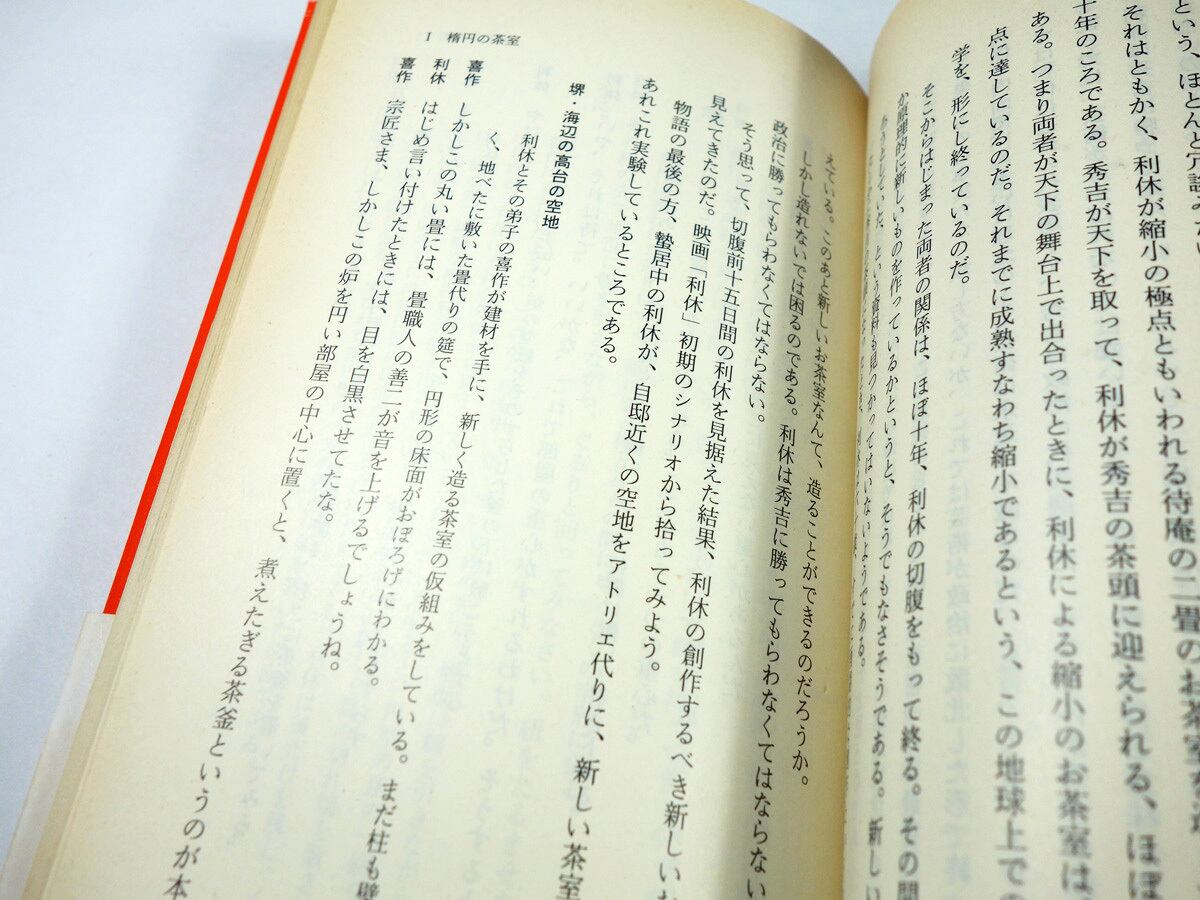 という、ほとんど
それはともかく、利休が縮小の極点ともいわれる待庵の二畳のお茶室を
十年のころである。秀吉が天下を取って、利休が秀吉の茶頭に迎えられる、ほぼ
ある。つまり両者が天下の舞台上で出合ったときに、利休による縮小のお茶室は、
点に達しているのだ。それまでに成熟すなわち縮小であるという、この地球上での
学を、形にし終っているのだ。
そこからはじまった両者の関係は、ほぼ十年、利休の切腹をもって終る。その間
か原理的に新しいものを作っているかというと、そうでもなさそうである。新しい
という資料も見つかってはいないようである。
えている。このあと新しいお茶室なんて、造ることができるのだろうか。
しかし造れないでは困るのである。利休は秀吉に勝ってもらわなくてはならない
政治に勝ってもらわなくてはならない。
そう思って、切腹前十五日間の利休を見据えた結果、利休の創作するべき新しいお
見えてきたのだ。映画「利休」初期のシナリオから拾ってみよう。
物語の最後の方、蟄居中の利休が、自邸近くの空地をアトリエ代りに、新しい茶室
あれこれ実験しているところである。
堺・海辺の高台の空地
利休とその弟子の喜作が建材を手に、新しく造る茶室の仮組みをしている。まだ柱も壁
く、地べたに敷いた畳代りの筵で、円形の床面がおぼろげにわかる。
喜作 しかしこの丸い畳には、畳職人の善二が音を上げるでしょうね。
利休 はじめ言い付けたときには、目を白黒させてたな。
喜作 宗匠さま、しかしこの炉を円い部屋の中心に置くと、煮えたぎる茶釜というのが本
I 楕円の茶室